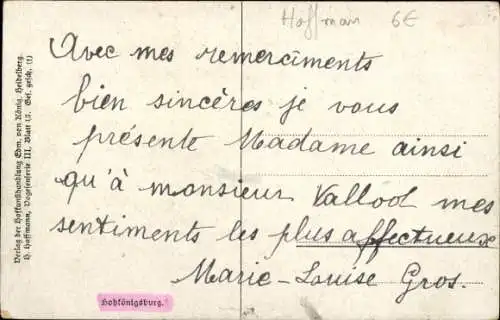 Hoffman 6€
Avec mes remerciments
bien sincères je vous
présente Madame ainsi
qu'à monsieur Vallool mes
sentiments les plus affectueux
Marie-Louise Gros.
Verlag der Hofkunsthandlung Edm. von König, Heidelberg.
H. Hoffmann, Vogesenserie III, Blatt 13. Ges. gesch. (1)
Hohkönigsburg.